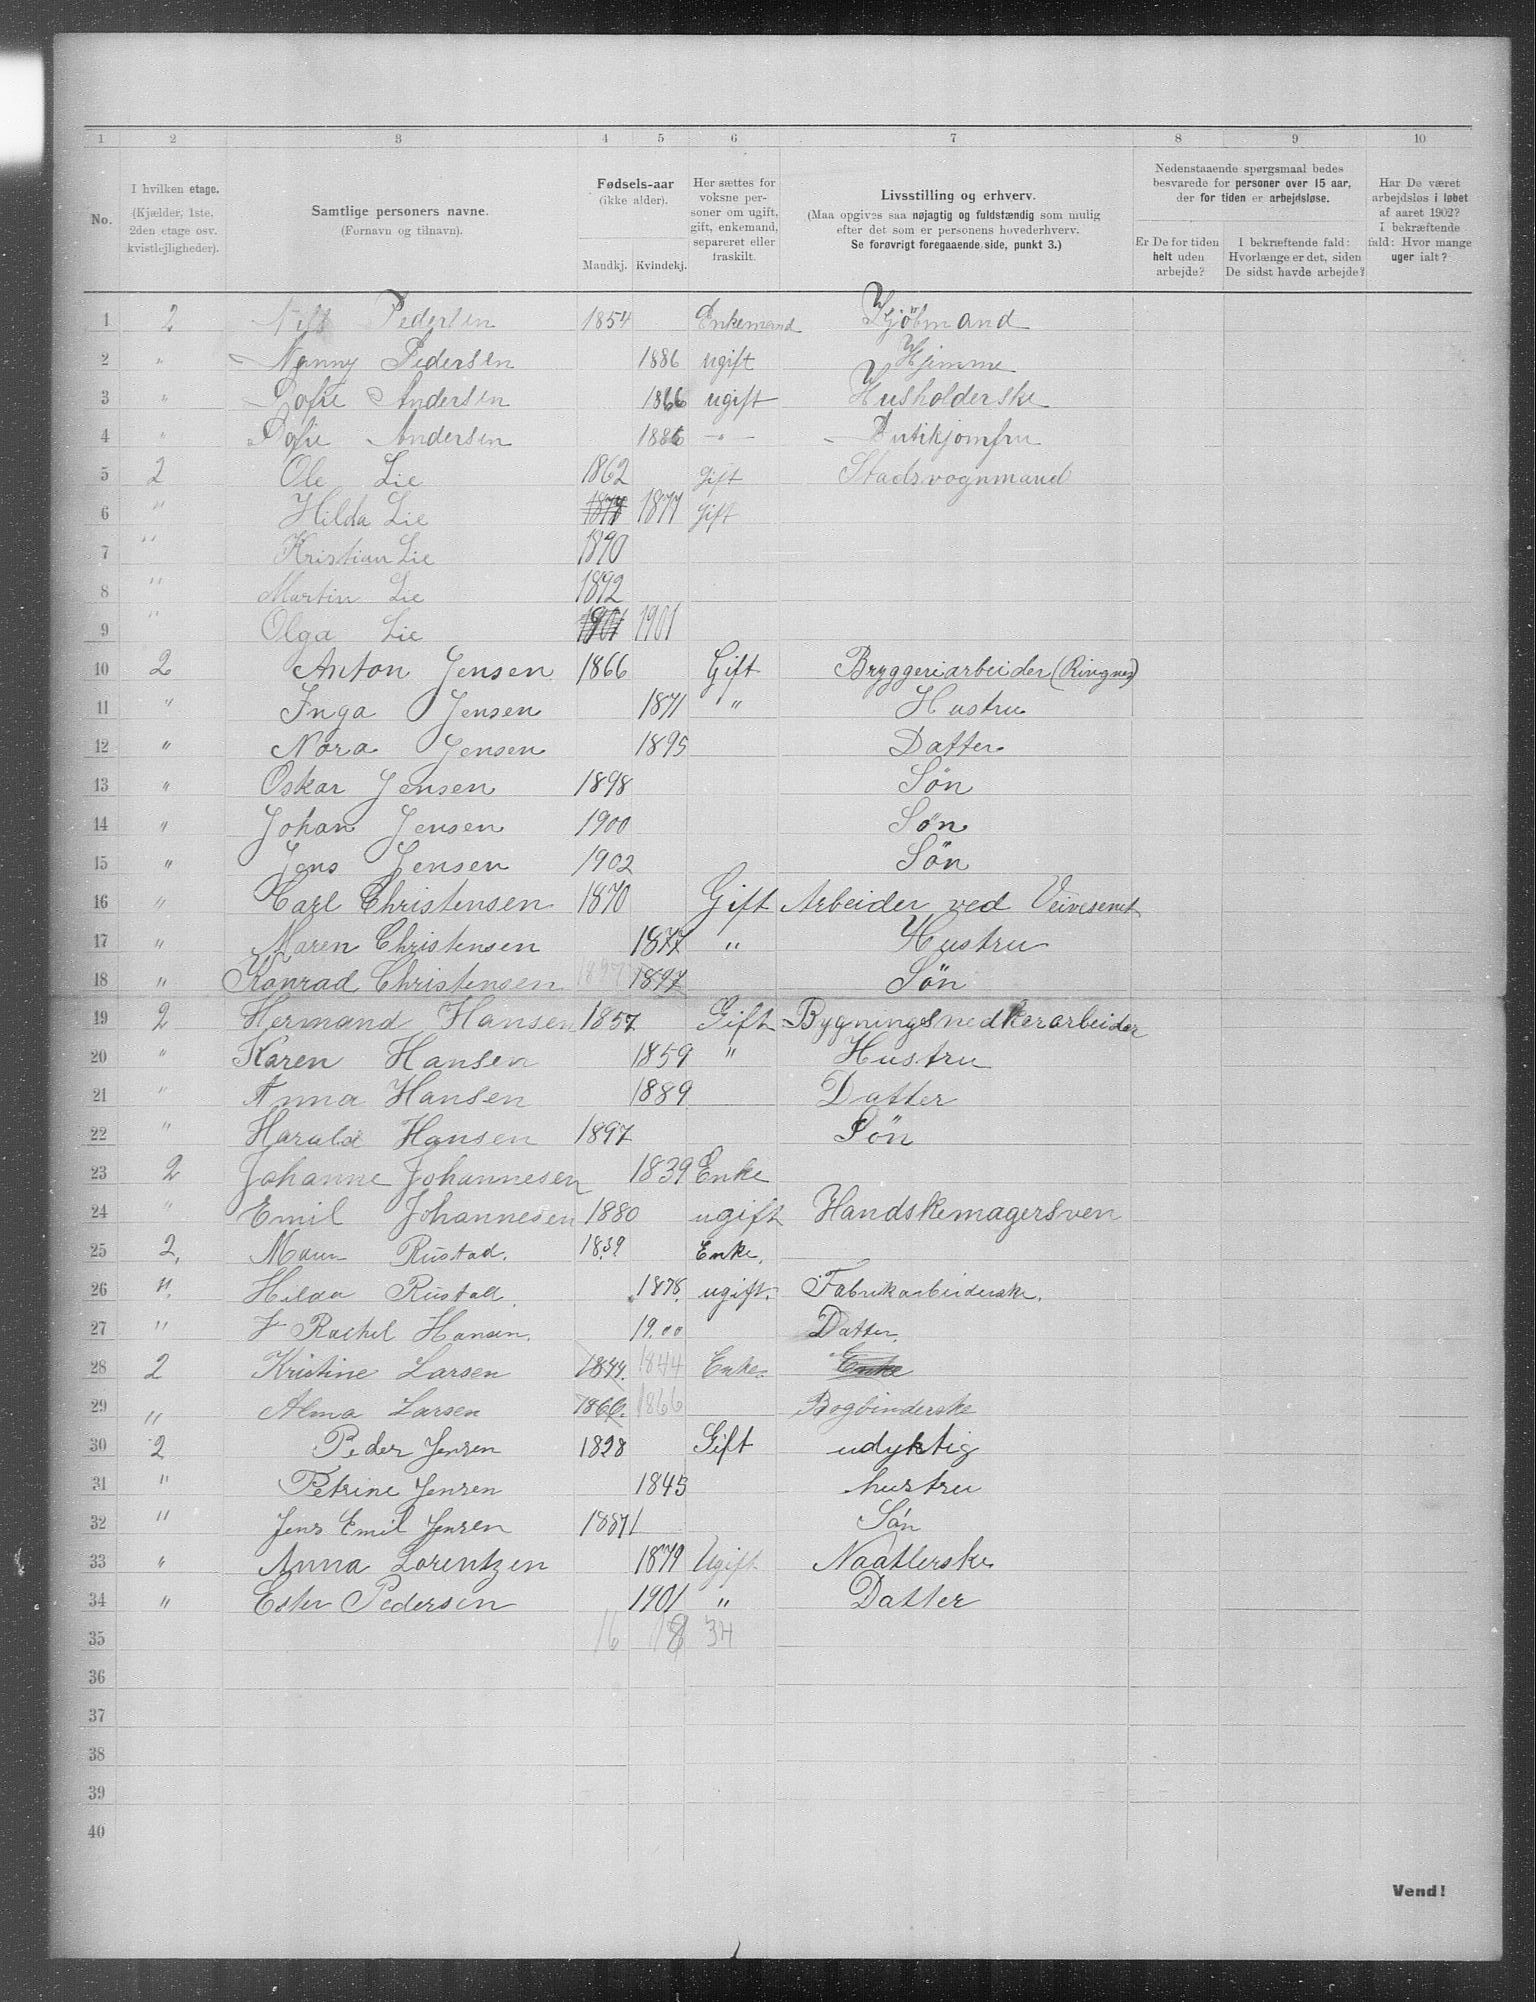 1 2 3 4 5 6 7 8 9 10
No.
I hvilken etage. (Kjælder, 1ste, 2den etage osv. kvistlejligheder).
Samtlige personers navne. (Fornavn og tilnavn).
Fødsels-aar (ikke alder).
Mandkj. Kvindekj.
Her sættes for voksne personer om ugift, gift, enkemand, separeret eller fraskilt.
Livsstilling og erhverv.
(Maa opgives saa nøjagtig og fuldstændig som mulig efter det som er personens hovederhverv.
Se forøvrigt foregaaende side, punkt 3.)
Nedenstaaende spørgsmaal bedes besvarede for personer over 15 aar, der for tiden er arbejdsløse.
Er De for tiden helt uden arbejde?
I bekræftende fald: Hvorlænge er det, siden De sidst havde arbejde?
Har De været arbejdsløs i løbet af aaret 1902? I bekræftende fald: Hvor mange uger ialt?
1 2 Nils Pedersen 1854 Enkemand Kjöbmand
2 " Nanny Pedersen 1886 ugift Hjemme
3 " Sofie Andersen 1866 ugift Husholderske
4 " Sofie Andersen 1886 - " - Butikjomfru
5 2 Ole Lie 1862 Gift Stadsvognmand
6 " Hilda Lie 1877 1877 Gift
7 " Kristian Lie 1890
8 " Martin Lie 1892
9 " Olga Lie 1901 1901
10 2 Anton Jensen 1866 Gift Bryggeriarbeider (Ringnes)
11 " Inga Jensen 1871 " Hustru
12 " Nora Jensen 1895 Datter
13 " Oskar Jensen 1898 Sön
14 " Johan Jensen 1900 Sön
15 " Jens Jensen 1902 Sön
16 " Carl Christensen 1870 Gift Arbeider ved Veivesenet
17 " Maren Christensen 1877 " Hustru
18 " Konrad Christensen 1897 1897 Sön
19 2 Hermand Hansen 1857 Gift Bygningssnedkerarbeider
20 " Karen Hansen 1859 " Hustru
21 " Anna Hansen 1889 Datter
22 " Harald Hansen 1897 Sön
23 2 Johanne Johannesen 1839 Enke
24 " Emil Johannesen 1880 ugift Handskemagersven
25 2. Rustad. 1839 Enke.
26 ". Hilda Rustad. 1878. ugift. Fabrikarbeiderske.
27 " Rachel Hansen. 19.00 Datter.
28 2 Kristine Larsen 1844. 1844 Enke. Enke
29 " Alma Larsen 1866. 1866 Bogbinderske
30 2 Peder Jensen 1828 Gift udyktig
31 " Petrine Jensen 1845 hustru
32 " Jens Emil Jensen 1887 Sön
33 " Anna Lorentzen 1879 Ugift Naatlerske
34 " Ester Pedersen 1901 " Datter
35 16 18 34
36
37
38
39
40
Vend!